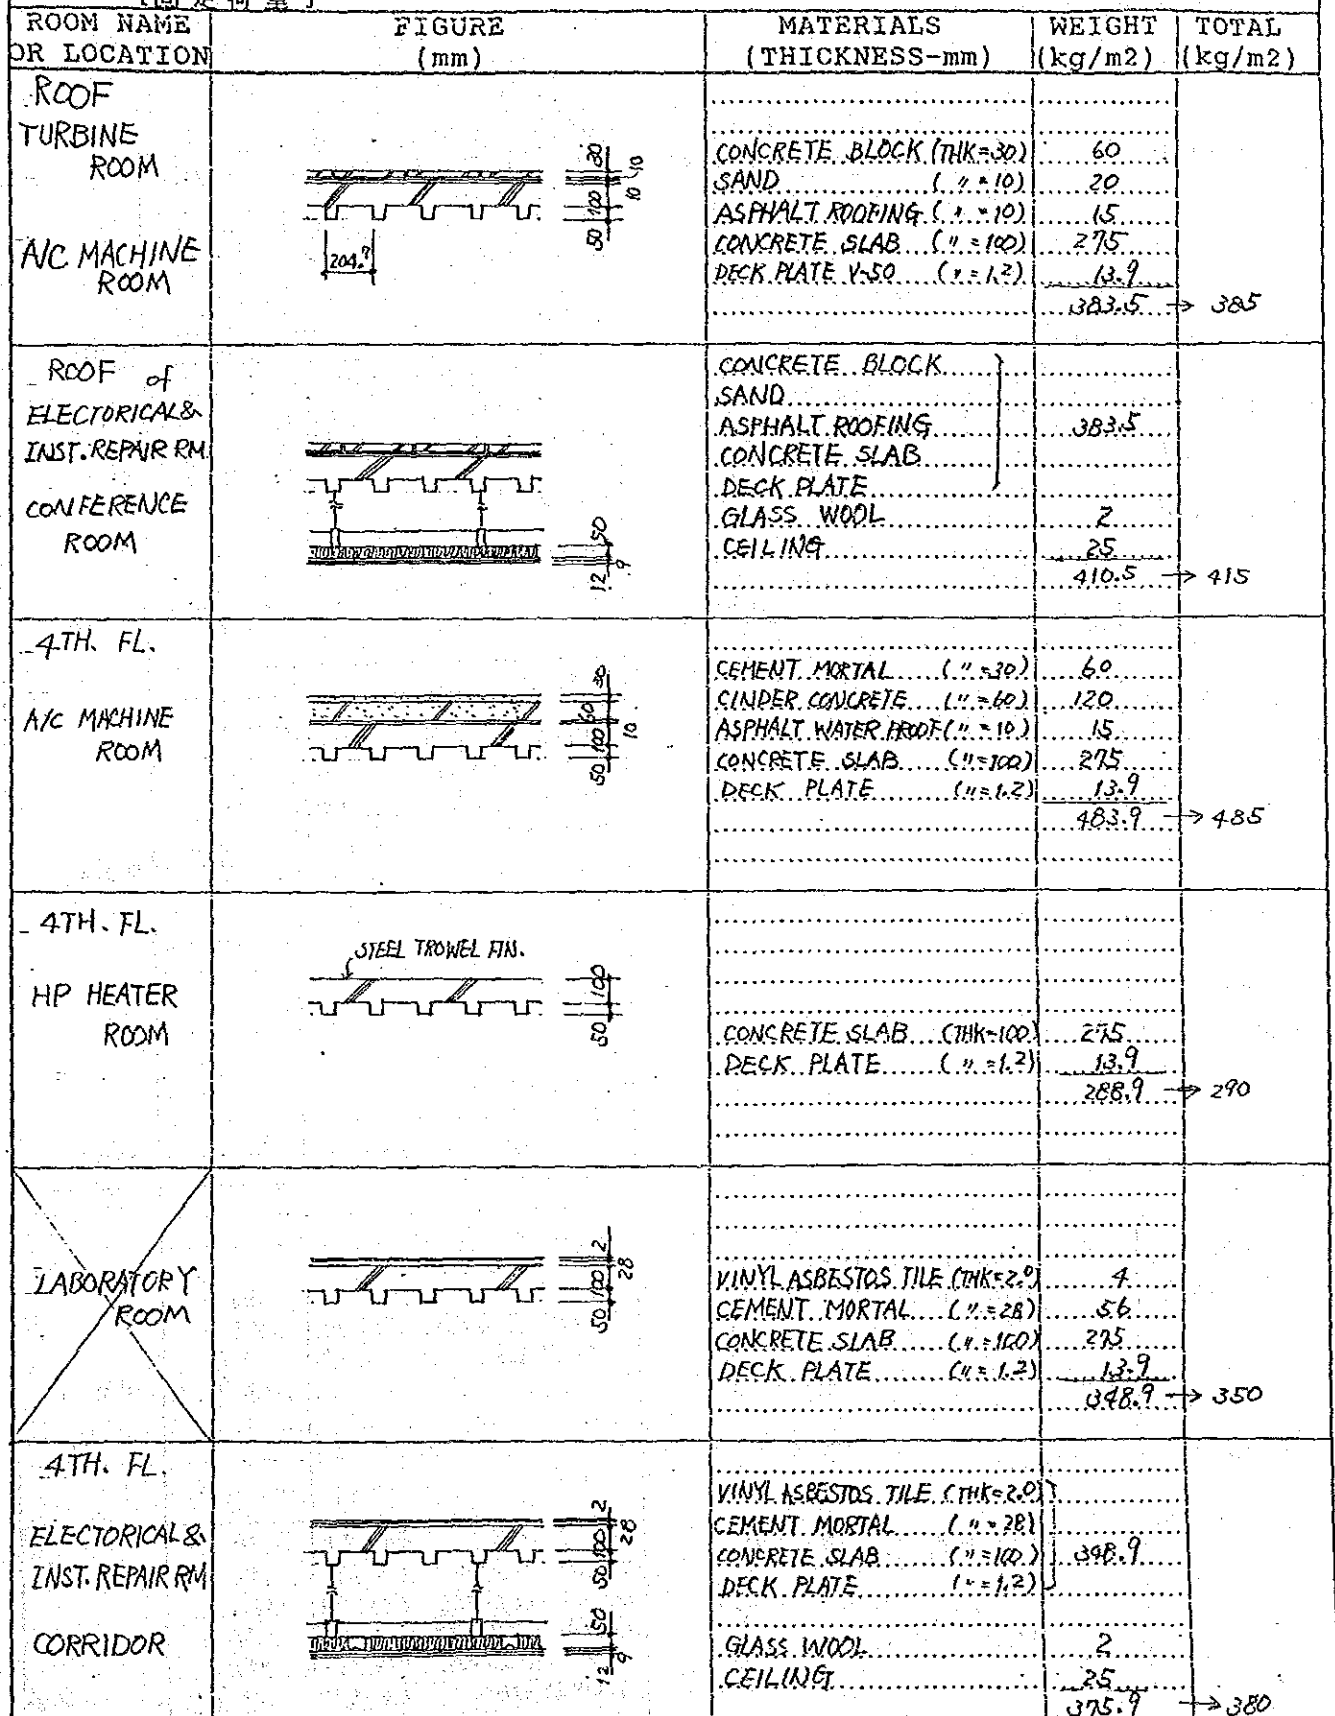 [固定荷重]
ROOM NAME OR LOCATION FIGURE (mm) MATERIALS (THICKNESS-mm) WEIGHT (kg/m2) TOTAL (kg/m2)
ROOF
TURBINE ROOM
A/C MACHINE ROOM
204.7
30
10
10
100
50
CONCRETE BLOCK (THK=30) 60
SAND ( " =10) 20
ASPHALT ROOFING ( " =10) 15
CONCRETE SLAB ( " =100) 275
DECK PLATE V-50 ( " =1.2) 13.9
383.5 → 385
ROOF of
ELECTORICAL &
INST. REPAIR RM
CONFERENCE
ROOM
50
12
9
CONCRETE BLOCK
SAND
ASPHALT ROOFING 383.5
CONCRETE SLAB
DECK PLATE
GLASS WOOL 2
CEILING 25
410.5 → 415
4TH. FL.
A/C MACHINE
ROOM
30
60
10
100
50
CEMENT MORTAL ( " =30) 60
CINDER CONCRETE ( " =60) 120
ASPHALT WATER PROOF ( " =10) 15
CONCRETE SLAB ( " =100) 275
DECK PLATE ( " =1.2) 13.9
483.9 → 485
4TH. FL.
HP HEATER
ROOM
STEEL TROWEL FIN.
100
50
CONCRETE SLAB (THK=100) 275
DECK PLATE ( " =1.2) 13.9
288.9 → 290
LABORATORY
ROOM
2
28
100
50
VINYL ASBESTOS TILE (THK=2.0) 4
CEMENT MORTAL ( " =28) 56
CONCRETE SLAB ( " =100) 275
DECK PLATE ( " =1.2) 13.9
348.9 → 350
4TH. FL.
ELECTORICAL &
INST. REPAIR RM
CORRIDOR
2
28
100
50
50
12
9
VINYL ASBESTOS TILE (THK=2.0)
CEMENT MORTAL ( " =28)
CONCRETE SLAB ( " =100) 348.9
DECK PLATE ( " =1.2)
GLASS WOOL 2
CEILING 25
375.9 → 380